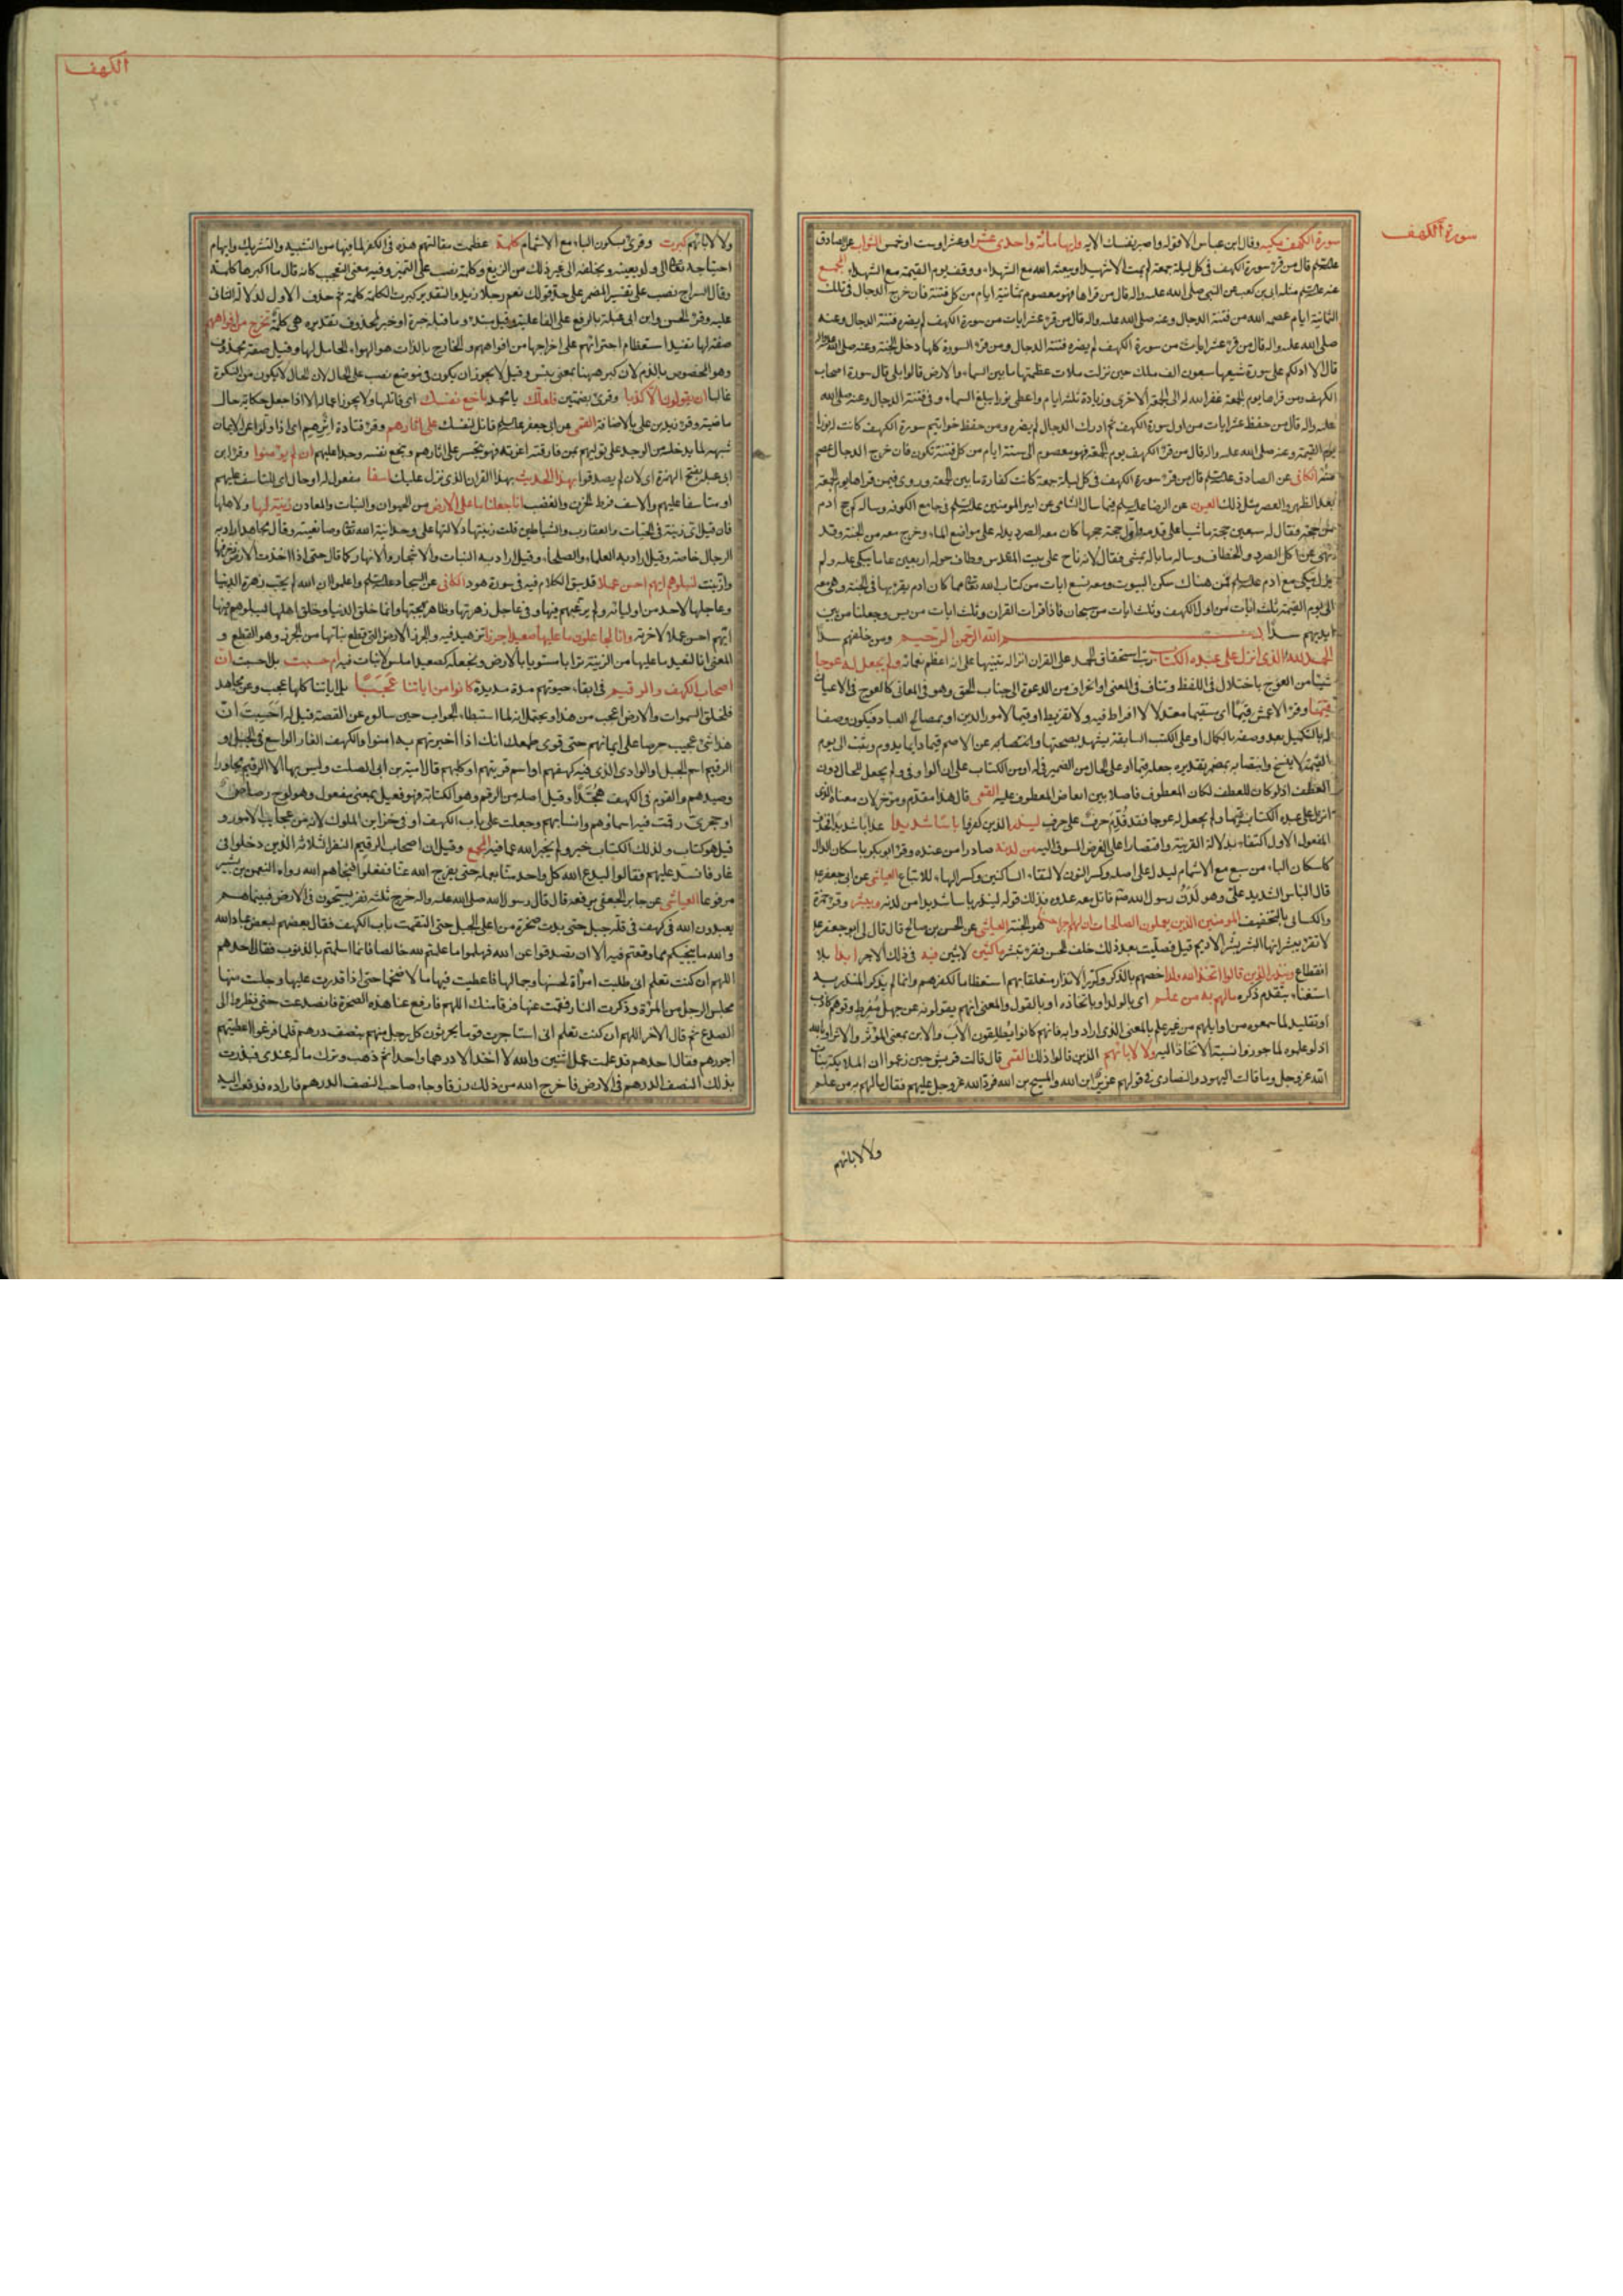 سورة الكهف
سورة الكهف مكية وقال ابن عباس الا قوله واصبر نفسك الاية وايها مائة واحدى عشر او عشر او ست او خمس الثواب عن الصادق
قال من قرء سورة الكهف في كل ليلة جمعة لم يمت الا شهيدا ويبعثه الله مع الشهداء ووقف يوم القيمة مع الشهداء المجمع
مثله ابى بن كعب عن النبي صلى الله عليه واله قال من قراها فهو معصوم ثمانية ايام من كل فتنة فان خرج الدجال في تلك
الثمانية ايام عصمه الله من فتنة الدجال وعنه صلى الله عليه واله قال من قرء عشر ايات من سورة الكهف لم يضره فتنة الدجال وعنه
صلى الله عليه واله قال من قرء عشر ايات من سورة الكهف لم يضره فتنة الدجال ومن قرء السورة كلها دخل الجنة وعنه صلى الله عليه واله
قال الا ادلكم على سورة شيعها سبعون الف ملك حين نزلت ملات عظمتها ما بين السماء والارض قالوا بلى قال سورة اصحاب
الكهف ومن قراها يوم الجمعة غفر الله له الى الجمعة الاخرى وزيادة ثلثة ايام واعطى نورا يبلغ السماء ووقى فتنة الدجال وعنه صلى الله
عليه واله قال من حفظ عشر ايات من اول سورة الكهف ثم ادرك الدجال لم يضره ومن حفظ خواتيم سورة الكهف كانت له نورا
يوم القيمة وعنه صلى الله عليه واله قال من قرء الكهف يوم الجمعة فهو معصوم الى ستة ايام من كل فتنة تكون فان خرج الدجال عصم
منه الكافى عن الصادق قال من قرء سورة الكهف في كل ليلة جمعة كانت كفارة ما بين الجمعة وروى فيمن قراها يوم الجمعة
بعد الظهر والعصر مثل ذلك العيون عن الرضا فيما سال الشامى عن امير المومنين في جامع الكوفة وساله كم حج ادم
من حجة فقال له سبعين حجة ماشيا على قدميه واول حجة حجها كان معه الصرد يدله على مواضع الماء وخرج معه من الجنة وقد
نهى عن اكل الصرد والخطاف وساله ما باله يمشى فقال لانه ناح على بيت المقدس وطاف حوله اربعين عاما يبكى عليه ولم
يزل يبكى مع ادم فمن هناك سكن البيوت ومعه تسع ايات من كتاب الله مما كان ادم يقرؤها في الجنة وهى معه
الى يوم القيمة ثلث ايات من اول الكهف وثلث ايات من سبحان فاذا قرات القران وثلث ايات من يس وجعلنا من بين
ايديهم سدا بسم الله الرحمن الرحيم ومن خلفهم سدا
الحمد لله الذى انزل على عبده الكتاب رتب استحقاق الحمد على القران انزاله تنبيها على انه اعظم نعمائه ولم يجعل له عوجا
شيئا من العوج باختلال في اللفظ وتناف في المعنى او انحراف من الدعوة الى جناب الحق وهو في المعانى كالعوج في الاعيان
قيما وقرء الاعمش قيما اى مستقيما معتدلا لا افراط فيه ولا تفريط او قيما لامور الدين او بمصالح العباد فيكون وصفا
له بالتكميل بعد وصفه بالكمال او على الكتب السابقة يشهد بصحتها وانتصابه عن الاصم قيما دايما يدوم ويثبت الى يوم
القيمة لا ينسخ وانتصابه بمضمر تقديره جعله قيما او على الحال من الضمير في له او من الكتاب على ان الواو في ولم يجعل للحال دون
العطف اذ لو كان للعطف لكان المعطوف فاصلا بين ابعاض المعطوف عليه القمى قال هذا مقدم ومؤخر لان معناه الذى
انزل على عبده الكتاب قيما ولم يجعل له عوجا فقد قدم حرف على حرف لينذر الذين كفروا باسا شديدا عذابا شديدا فحذف
المفعول الاول اكتفاء بدلالة القرينة واقتصارا على الغرض المسوق اليه من لدنه صادرا من عنده وقرء ابو بكر باسكان الدال
كاسكان الباء من سبع مع الاشمام ليدل على اصله وكسر النون لالتقاء الساكنين وكسر الهاء للاتباع العياشى عن ابى جعفر
قال الباس الشديد على وهو لدن رسول الله قاتل معه عدوه فذلك قوله لينذر باسا شديدا من لدنه ويبشر وقرء حمزة
والكسائى بالتخفيف المومنين الذين يعملون الصالحات ان لهم اجرا حسنا هو الجنة العياشى عن الحسن بن صالح قال قال لى ابو جعفر
لا تقرء يبشر انما البشر بشر الاديم قال فصليت بعد ذلك خلف الحسن فقرء تبشر ماكثين لابثين فيه في ذلك الاجر ابدا بلا
انقطاع وينذر الذين قالوا اتخذ الله ولدا خصهم بالذكر وكرر الانذار متعلقا بهم استعظاما لكفرهم وانما لم يذكر المنذر به
استغناء بتقدم ذكره ما لهم به من علم اى بالولد او باتخاذه او بالقول والمعنى انهم يقولونه عن جهل مفرط وتوهم كاذب
او تقليد لما سمعوه من اوايلهم من غير علم بالمعنى الذى ارادوا به فانهم كانوا يطلقون الاب والابن بمعنى المؤثر والاثر او بالله
اذ لو علموه لما جوزوا نسبة الاتخاذ اليه ولا لابائهم الذين قالوا ذلك القمى قال قالت قريش حين زعموا ان الملايكة بنات
الله عز وجل وما قالت اليهود والنصارى في قولهم عزير ابن الله والمسيح بن الله فرد الله عز وجل عليهم فقال ما لهم به من علم
ولا لابائهم
الكهف
٣٠٠
ولا لابائهم كبرت وقرئ بسكون الباء مع الاشمام كلمة عظمت مقالتهم هذه في الكفر لما فيها من التشبيه والتشريك وايهام
احتياجه الى ولد يعينه ويخلفه الى غير ذلك من الزيغ وكلمة نصب على التميز وفيه معنى التعجب كانه قال ما اكبرها كلمة
وقال السراج نصب على تفسير المضمر على حد قولك نعم رجلا زيد والتقدير كبرت الكلمة كلمة ثم حذف الاول لدلالة الثانى
عليه وقرء الحسن وابن ابى عبلة بالرفع على الفاعلية وقيل مبتدء وما قبله خبره او خبر لمحذوف تقديره هى كلمة تخرج من افواههم
صفة لها تفيد استعظام اجترائهم على اخراجها من افواههم والخارج بالذات هو الهواء الحامل لها وقيل صفة محذوف
وهو المخصوص بالذم لان كبر ههنا بمعنى بئس وقيل لا يجوز ان يكون في موضع نصب على الحال لان الحال لا يكون من النكرة
غالبا ان يقولون الا كذبا وقرئ بضمتين فلعلك يا محمد باخع نفسك اى قاتلها ولا يجوز اعمالها الا اذا جعل حكاية حال
ماضية وقرء زيد بن على بالاضافة القمى عن ابى جعفر قاتل نفسك على اثارهم وقرء قتادة اثرهم اى اذا ولوا عن الايمان
شبهه لما يدخله من الوجد على توليهم بمن فارقته اعزته فهو يتحسر على اثارهم ويبخع نفسه وجدا عليهم ان لم يؤمنوا وقرء ابن
ابى عبلة بفتح الهمزة اى لان لم يصدقوا بهذا الحديث بهذا القران الذى نزل عليك اسفا مفعول له او حال اى للتاسف عليهم
او متاسفا عليهم والاسف فرط الحزن والغضب انا جعلنا ما على الارض من الحيوان والنبات والمعادن زينة لها ولاهلها
فان قيل اى زينة في الحيات والعقارب والشياطين قلت زينتها دلالتها على وحدانية الله وصانعيته وقال مجاهد اراد به
الرجال خاصة وقيل اراد به العلماء والصلحاء وقيل اراد به النبات والاشجار والانهار كما قال حتى اذا اخذت الارض زخرفها
وازينت لنبلوهم ايهم احسن عملا قد سبق الكلام فيه في سورة هود الكافى عن السجاد واعلموا ان الله لم يحب زهرة الدنيا
وعاجلها لاحد من اوليائه ولم يرغبهم فيها وفي عاجل زهرتها وظاهر بهجتها وانما خلق الدنيا وخلق اهلها ليبلوهم فيها
ايهم احسن عملا لاخرته وانا لجاعلون ما عليها صعيدا جرزا تزهيد فيه والجرز الارض التى قطع نباتها من الجرز وهو القطع و
المعنى انا لنعيد ما عليها من الزينة ترابا مستويا بالارض ونجعله كصعيد املس لا نبات فيه ام حسبت بل احسبت ان
اصحاب الكهف والرقيم في ابقاء حيوتهم مدة مديدة كانوا من اياتنا عجبا بل اياتنا كلها عجب وعن مجاهد
فلخلق السموات والارض اعجب من هذا ويحتمل انه لما استبطاء الجواب حين سالوه عن القصة قيل له احسبت ان
هذا شئ عجيب حرصا على ايمانهم حتى قوى طمعك انك اذا اخبرتهم به امنوا والكهف الغار الواسع في الجبل و
الرقيم اسم الجبل او الوادى الذى فيه كهفهم او اسم قريتهم او كلبهم قال امية بن ابى الصلت وليس بها الا الرقيم مجاورا
وصيدهم والقوم في الكهف هجدا وقيل اصله من الرقم وهو الكتابة فهو فعيل بمعنى مفعول وهو لوح رصاصى
او حجرى رقمت فيه اسماؤهم وانسابهم وجعلت على باب الكهف او في خزاين الملوك لانه من عجايب الامور و
قيل هو كتاب ولذلك الكتاب خبر ولم يخبر الله عما فيه المجمع وقيل ان اصحاب الرقيم النفر الثلاثة الذين دخلوا في
غار فانسد عليهم فقالوا ليدع الله كل واحد منا بعمله حتى يفرج الله عنا ففعلوا فنجاهم الله رواه النعمن بن بشير
مرفوعا العياشى عن جابر الجعفى يرفعه قال قال رسول الله صلى الله عليه واله خرج ثلثة نفر يسيحون في الارض فبينما هم
يعبدون الله في كهف في قلة جبل حتى بدت صخرة من اعلى الجبل حتى التقمت باب الكهف فقال بعضهم لبعض عباد الله
والله ما ينجيكم مما وقعتم فيه الا ان تصدقوا عن الله فهلموا ما عملتم لله خالصا فانما ابتليتم بالذنوب فقال احدهم
اللهم ان كنت تعلم انى طلبت امراة لحسنها وجمالها فاعطيت فيها مالا ضخما حتى اذا قدرت عليها وجلست منها
مجلس الرجل من المرءة وذكرت النار فقمت عنها فرقا منك اللهم فارفع عنا هذه الصخرة فانصدعت حتى نظروا الى
الصدع ثم قال الاخر اللهم ان كنت تعلم انى استاجرت قوما يحرثون كل رجل منهم بنصف درهم فلما فرغوا اعطيتهم
اجورهم فقال احدهم قد عملت عمل اثنين والله لا اخذ الا درهما واحدا ثم ذهب وترك ماله عندى فبذرت
بذلك النصف الدرهم في الارض فاخرج الله من ذلك رزقا وجاء صاحب النصف الدرهم فاراده فدفعت اليه